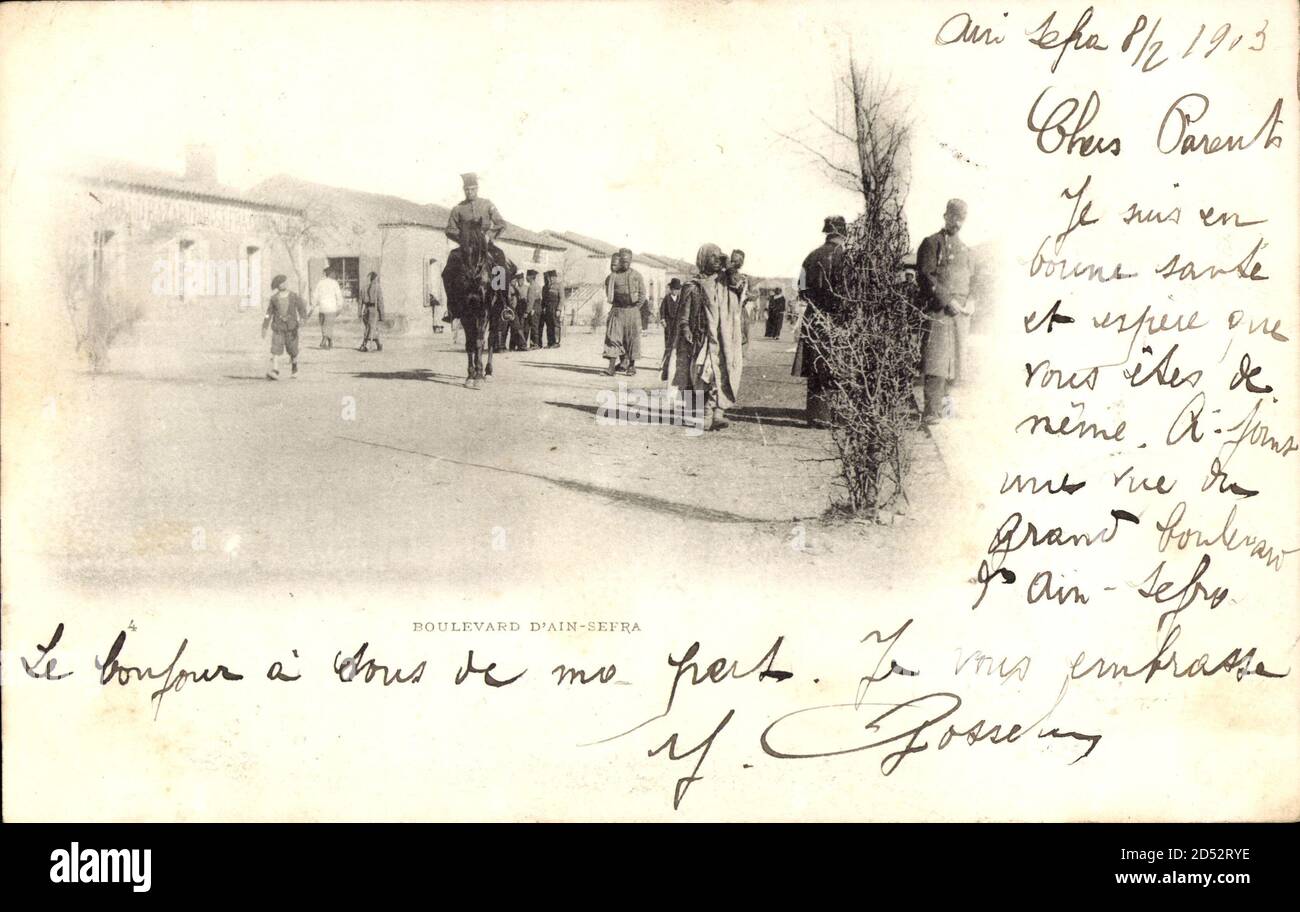 Ain Sefra 8/2 1903
Chers Parents
Je suis en
bonne santé
et espère que
vous êtes de
même. Ci-joint
une vue du
Grand boulevard
d'Ain-Sefra.
4
BOULEVARD D'AIN-SEFRA
Le bonjour à tous de ma part. Je vous embrasse
alamy
alamy
Image ID: 2D52RYE
www.alamy.com